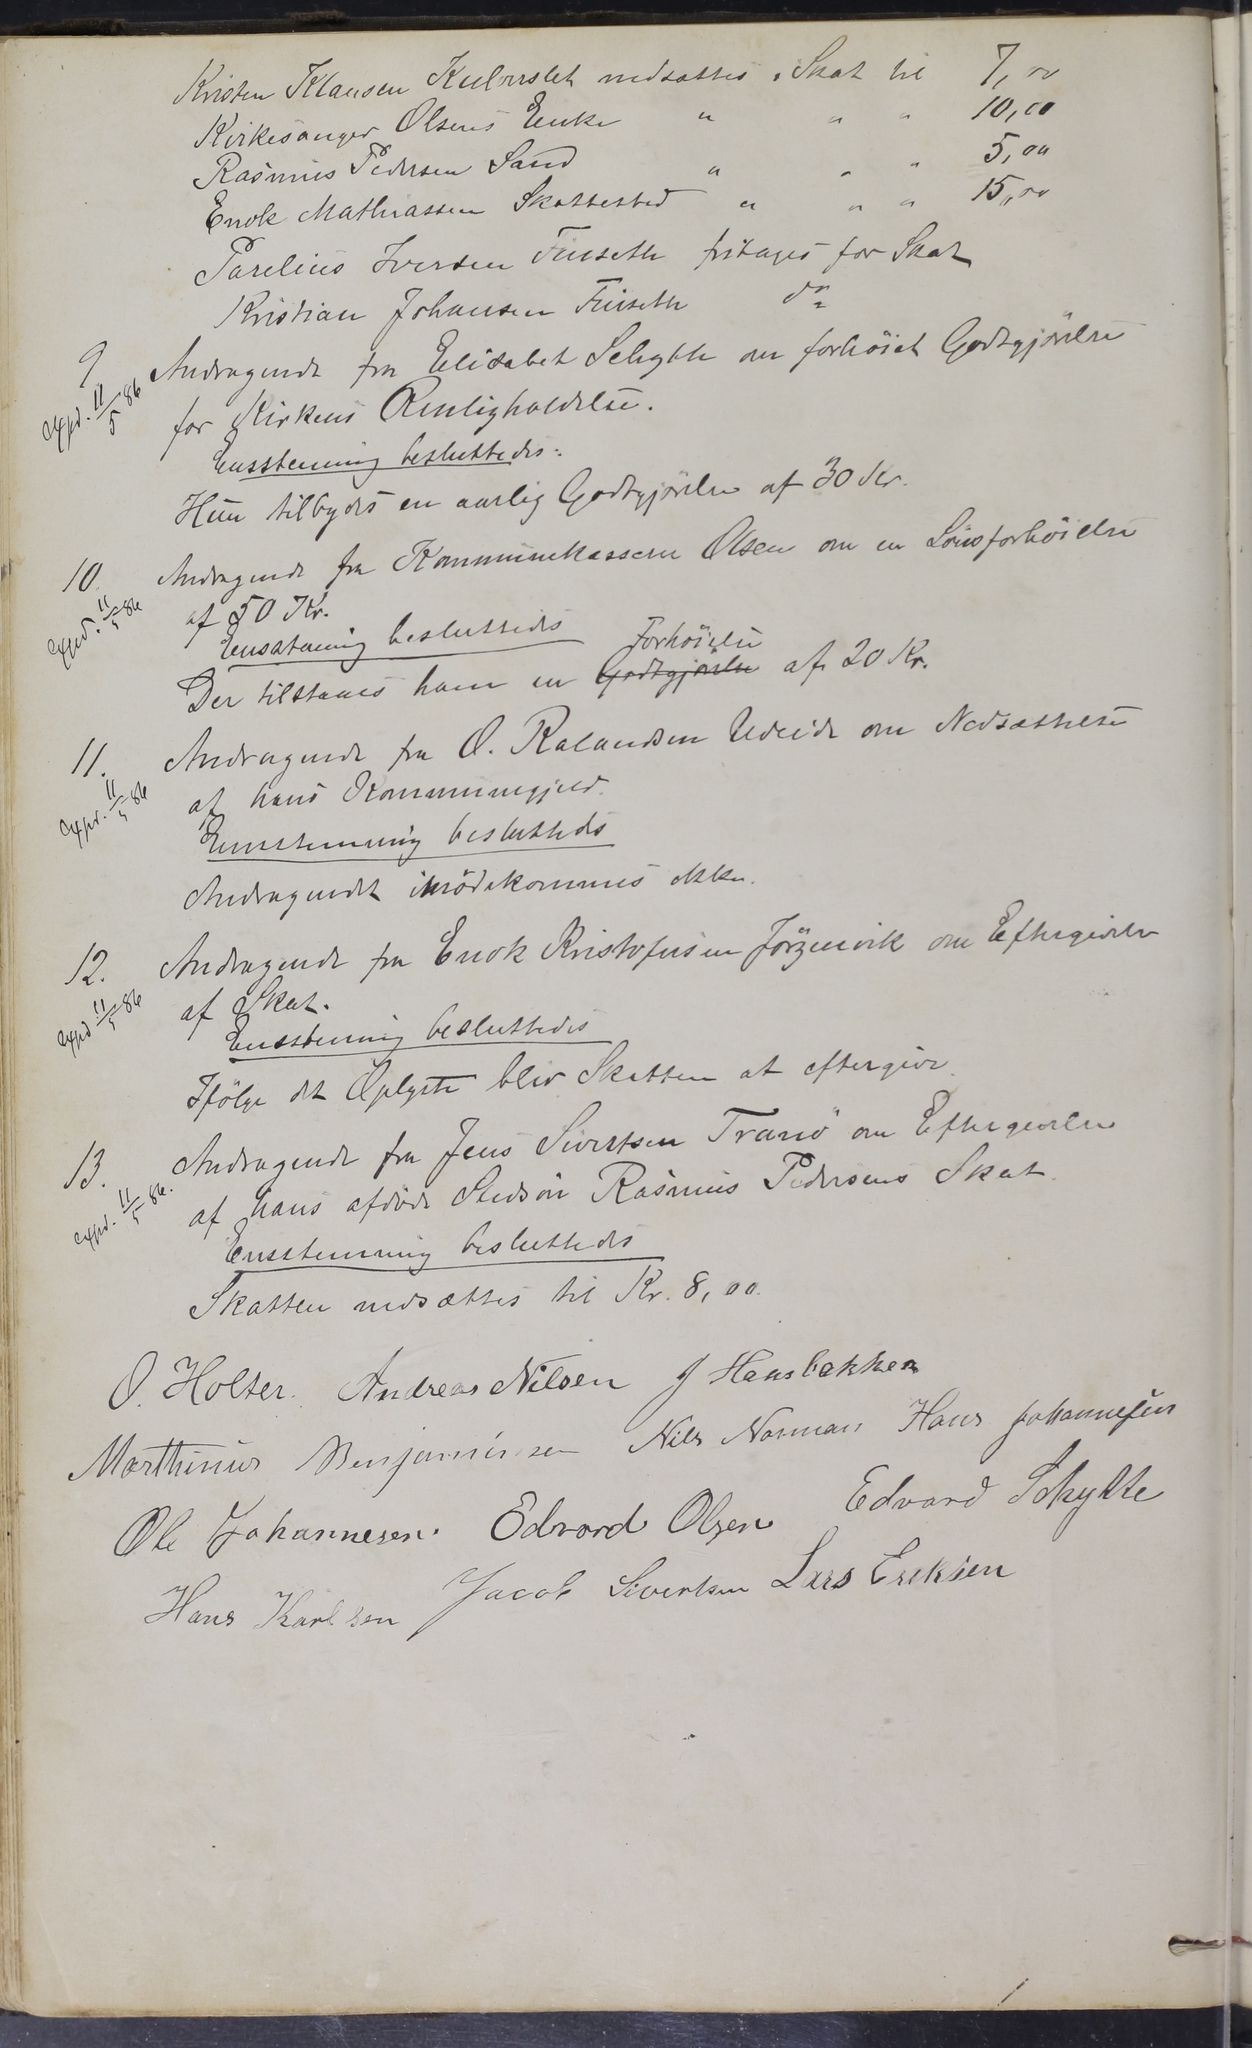 Kristen Klausen nedsættes i Skat til 7,00
Kirkesanger Olsens Enke " " " 10,00
Rasmus Pedersen Sand " " " 5,00
Enok Mathiassen Skattested " " " 15,00
Parelius Iversen Finseth fritages for Skat
Kristian Johansen Finseth do
9 Andragende fra Elisabet Schytte om forhöiet Godtgjörelse
expd. 11/5 86
for Kirkens Renligholdelse.
Enstemmig besluttedes:
Hun tilbydes en aarlig Godtgjörelse af 30 Kr.
10. Andragende fra Kommunekasserer Olsen om en Lönsforhöielse
expd. 11/5 86
af 50 Kr.
Enstemmig besluttedes
Forhöielse
Der tilstaaes ham en Godtgjörelse af 20 Kr.
11. Andragende fra O. Rolandsen om Nedsættelse
expd. 11/5 86
af hans Kommunegjeld.
Enstemmig besluttedes
Andragendet imödekommes ikke.
12. Andragende fra Enok Kristofersen om Eftergivelse
expd 11/5 86
af Skat.
Enstemmig besluttedes
Ifölge det Oplyste blev Skatten at eftergive
13. Andragende fra Jens Sivertsen Tranö om Eftergivelse
expd. 11/5 86.
af hans afdöde Stedsön Rasmus Pedersens Skat.
Enstemmig besluttedes
Skatten nedsættes til Kr. 8,00.
O. Holter. Andreas Nilsen J Hansbakken
Marthinus Benjaminsen Nils Norman Hans Johannesen
Ole Johannesen. Edvard Olsen Edvard Schytte
Hans Karlsen Jacob Sivertsen Lars Eriksen